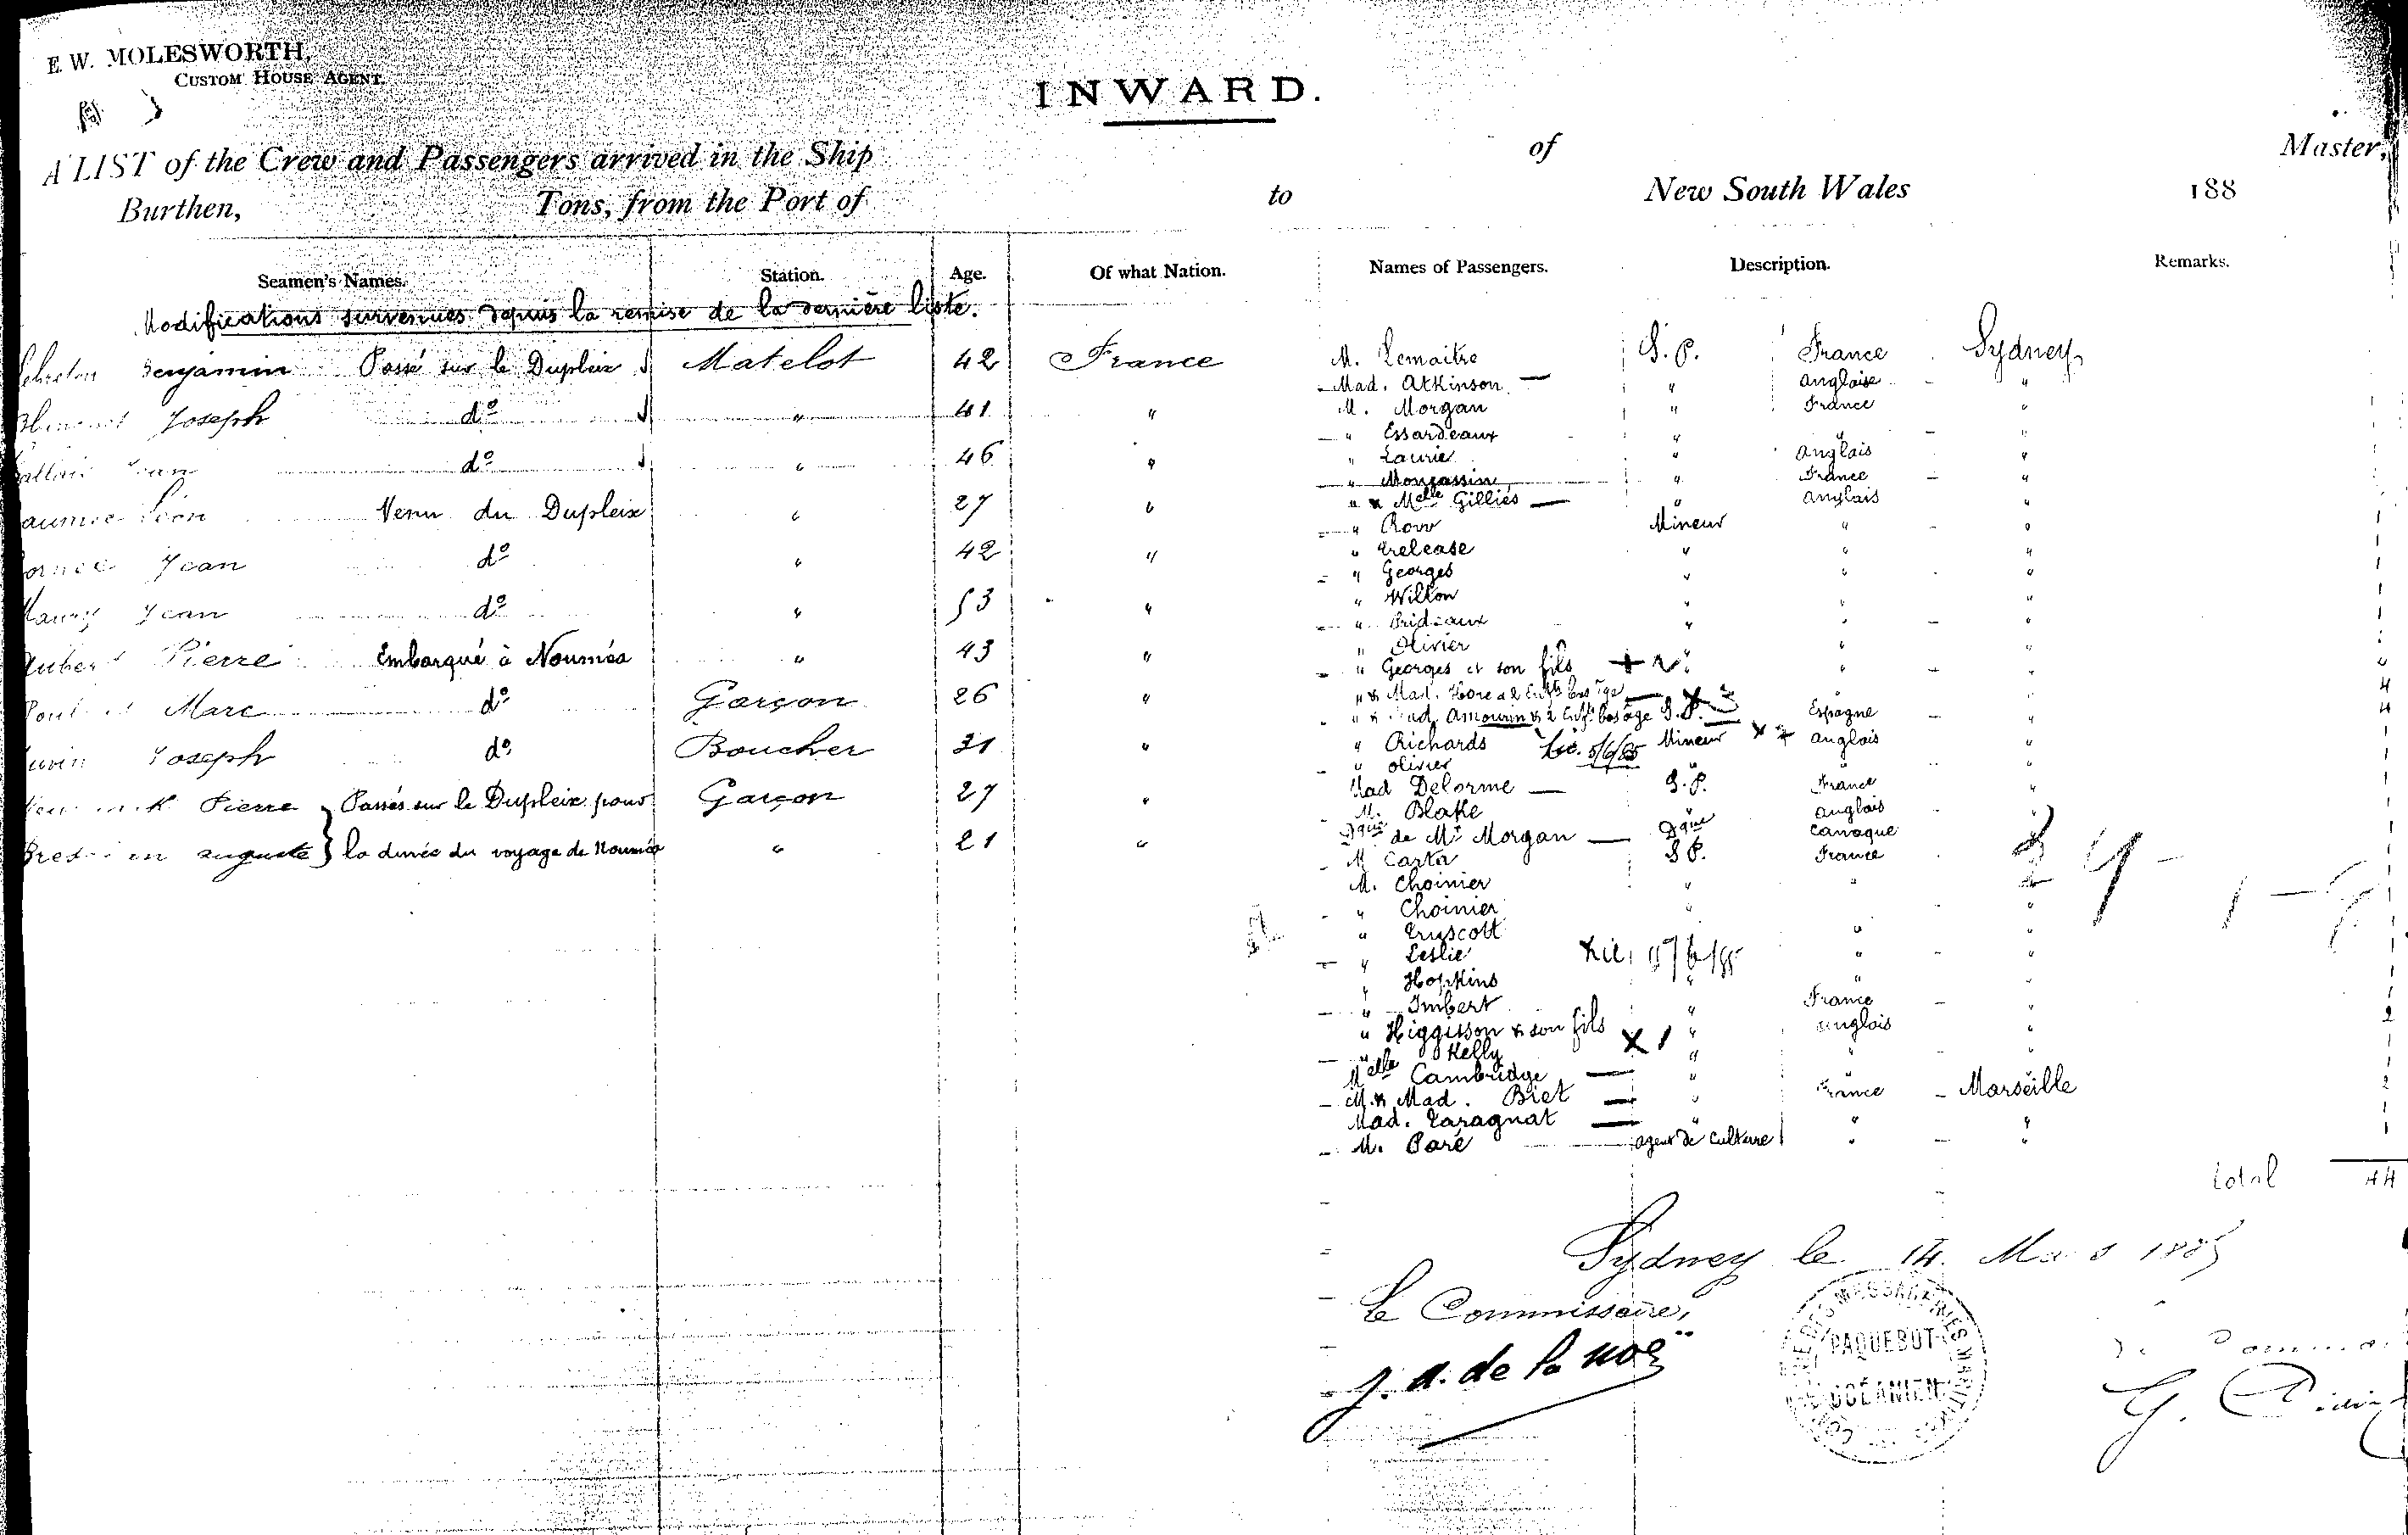 E. W. MOLESWORTH,
CUSTOM HOUSE AGENT.
INWARD.
A LIST of the Crew and Passengers arrived in the Ship of Master,
Burthen, Tons, from the Port of to New South Wales 188
Seamen's Names. Station. Age. Of what Nation. Names of Passengers. Description. Remarks.
Modifications survenues depuis la remise de la dernière liste.
Benjamin Passé sur le Dupleix Matelot 42 France
Joseph do " 41 "
do " 46 "
Léon Venu du Dupleix " 27 "
Jean do " 42 "
Jean do " 53 "
Pierre Embarqué à Nouméa " 43 "
Marc do Garçon 26 "
Joseph do Boucher 31 "
Pierre } Passés sur le Dupleix pour Garçon 27 "
auguste } la durée du voyage de Nouméa " 21 "
M. Lemaitre S. P. France Sydney
Mad. Atkinson — " anglaise "
M. Morgan " France "
" Essardeaux " " "
" Laurie " anglais "
" Mongassin " France "
" & Melle Gilliés — " anglais "
" Row Mineur " "
" Trelease " " "
" Georges " " "
" Wilton " " "
" Prideaux " " "
" Olivier " " "
" Georges et son fils " "
" & Mad. Hore & 2 Enfts bas âge 4
" & Mad. Amourin & 2 Enfts bas âge S. P. Espagne " 4
" Richards Lic. 5/6/85 Mineur anglais "
" Olivier " " "
Mad Delorme — S. P. France "
M. Blake " anglais "
Dque de Mr Morgan — Dque Canaque
M Carta S P. France
M. Choinier " "
" Choinier " "
" Truscott " "
" Leslie " "
" Hopkins " " "
" Imbert " France "
" Higgisson & son fils X 1 " anglais " 2
" Kelly " " "
Melle Cambridge — " " "
M. & Mad. Biet — " France Marseille 2
Mad. Taragnat — " " "
M. Paré agent de culture " "
total 44
Sydney le 14 Mars 1885
Le Commissaire,
J. A. de la Noë
MESSAGERIES MARITIMES
PAQUEBOT
OCÉANIEN